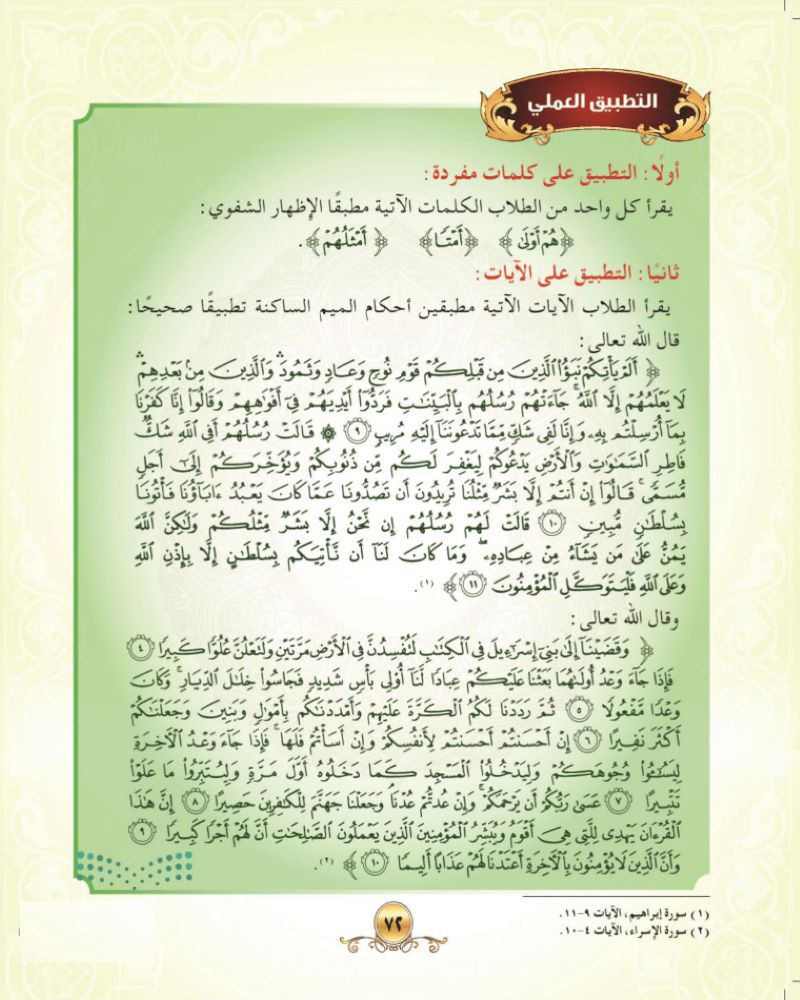 التطبيق العملي
أولًا: التطبيق على كلمات مفردة:
يقرأ كل واحد من الطلاب الكلمات الآتية مطبقًا الإظهار الشفوي:
﴿هُمْ أَوْلَىٰ﴾ ﴿أَمْتًا﴾ ﴿أَمْثَلُهُمْ﴾.
ثانيًا: التطبيق على الآيات:
يقرأ الطلاب الآيات الآتية مطبقين أحكام الميم الساكنة تطبيقًا صحيحًا:
قال الله تعالى:
﴿أَلَمْ يَأْتِكُمْ نَبَؤُا۟ ٱلَّذِينَ مِن قَبْلِكُمْ قَوْمِ نُوحٍ وَعَادٍ وَثَمُودَ ۛ وَٱلَّذِينَ مِنۢ بَعْدِهِمْ ۛ
لَا يَعْلَمُهُمْ إِلَّا ٱللَّهُ ۚ جَآءَتْهُمْ رُسُلُهُم بِٱلْبَيِّنَٰتِ فَرَدُّوٓا۟ أَيْدِيَهُمْ فِىٓ أَفْوَٰهِهِمْ وَقَالُوٓا۟ إِنَّا كَفَرْنَا
بِمَآ أُرْسِلْتُم بِهِۦ وَإِنَّا لَفِى شَكٍّ مِّمَّا تَدْعُونَنَآ إِلَيْهِ مُرِيبٍ ٩ ۞ قَالَتْ رُسُلُهُمْ أَفِى ٱللَّهِ شَكٌّ
فَاطِرِ ٱلسَّمَٰوَٰتِ وَٱلْأَرْضِ ۖ يَدْعُوكُمْ لِيَغْفِرَ لَكُم مِّن ذُنُوبِكُمْ وَيُؤَخِّرَكُمْ إِلَىٰٓ أَجَلٍ
مُّسَمًّى ۚ قَالُوٓا۟ إِنْ أَنتُمْ إِلَّا بَشَرٌ مِّثْلُنَا تُرِيدُونَ أَن تَصُدُّونَا عَمَّا كَانَ يَعْبُدُ ءَابَآؤُنَا فَأْتُونَا
بِسُلْطَٰنٍ مُّبِينٍ ١٠ قَالَتْ لَهُمْ رُسُلُهُمْ إِن نَّحْنُ إِلَّا بَشَرٌ مِّثْلُكُمْ وَلَٰكِنَّ ٱللَّهَ
يَمُنُّ عَلَىٰ مَن يَشَآءُ مِنْ عِبَادِهِۦ ۖ وَمَا كَانَ لَنَآ أَن نَّأْتِيَكُم بِسُلْطَٰنٍ إِلَّا بِإِذْنِ ٱللَّهِ
وَعَلَى ٱللَّهِ فَلْيَتَوَكَّلِ ٱلْمُؤْمِنُونَ ١١﴾(١).
وقال الله تعالى:
﴿وَقَضَيْنَآ إِلَىٰ بَنِىٓ إِسْرَٰٓءِيلَ فِى ٱلْكِتَٰبِ لَتُفْسِدُنَّ فِى ٱلْأَرْضِ مَرَّتَيْنِ وَلَتَعْلُنَّ عُلُوًّا كَبِيرًا ٤
فَإِذَا جَآءَ وَعْدُ أُولَىٰهُمَا بَعَثْنَا عَلَيْكُمْ عِبَادًا لَّنَآ أُو۟لِى بَأْسٍ شَدِيدٍ فَجَاسُوا۟ خِلَٰلَ ٱلدِّيَارِ ۚ وَكَانَ
وَعْدًا مَّفْعُولًا ٥ ثُمَّ رَدَدْنَا لَكُمُ ٱلْكَرَّةَ عَلَيْهِمْ وَأَمْدَدْنَٰكُم بِأَمْوَٰلٍ وَبَنِينَ وَجَعَلْنَٰكُمْ
أَكْثَرَ نَفِيرًا ٦ إِنْ أَحْسَنتُمْ أَحْسَنتُمْ لِأَنفُسِكُمْ ۖ وَإِنْ أَسَأْتُمْ فَلَهَا ۚ فَإِذَا جَآءَ وَعْدُ ٱلْءَاخِرَةِ
لِيَسُۥٓـُٔوا۟ وُجُوهَكُمْ وَلِيَدْخُلُوا۟ ٱلْمَسْجِدَ كَمَا دَخَلُوهُ أَوَّلَ مَرَّةٍ وَلِيُتَبِّرُوا۟ مَا عَلَوْا۟
تَتْبِيرًا ٧ عَسَىٰ رَبُّكُمْ أَن يَرْحَمَكُمْ ۚ وَإِنْ عُدتُّمْ عُدْنَا ۘ وَجَعَلْنَا جَهَنَّمَ لِلْكَٰفِرِينَ حَصِيرًا ٨ إِنَّ هَٰذَا
ٱلْقُرْءَانَ يَهْدِى لِلَّتِى هِىَ أَقْوَمُ وَيُبَشِّرُ ٱلْمُؤْمِنِينَ ٱلَّذِينَ يَعْمَلُونَ ٱلصَّٰلِحَٰتِ أَنَّ لَهُمْ أَجْرًا كَبِيرًا ٩
وَأَنَّ ٱلَّذِينَ لَا يُؤْمِنُونَ بِٱلْءَاخِرَةِ أَعْتَدْنَا لَهُمْ عَذَابًا أَلِيمًا ١٠﴾(٢).
(١) سورة إبراهيم، الآيات ٩-١١.
(٢) سورة الإسراء، الآيات ٤-١٠.
٧٢